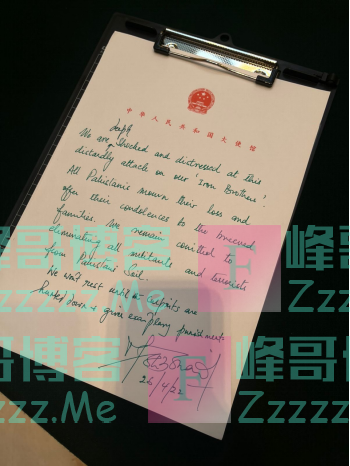 中华人民共和国大使馆
deeply
We are shocked and distressed at this
dastardly attack on our 'Iron Brothers'.
All Pakistanis mourn their loss and
offer their condolences to the bereaved
families. We remain committed to
eliminating all militants and terrorists
from Pakistani Soil.
We won't rest until culprits are
hunted down & given exemplary punishments
26/4/22
峰哥博客
Zzzzz.Me
F
峰哥博客
Zzzzz.Me
峰哥博客
Zzzzz.Me
F
峰哥博客
Zzzzz.Me